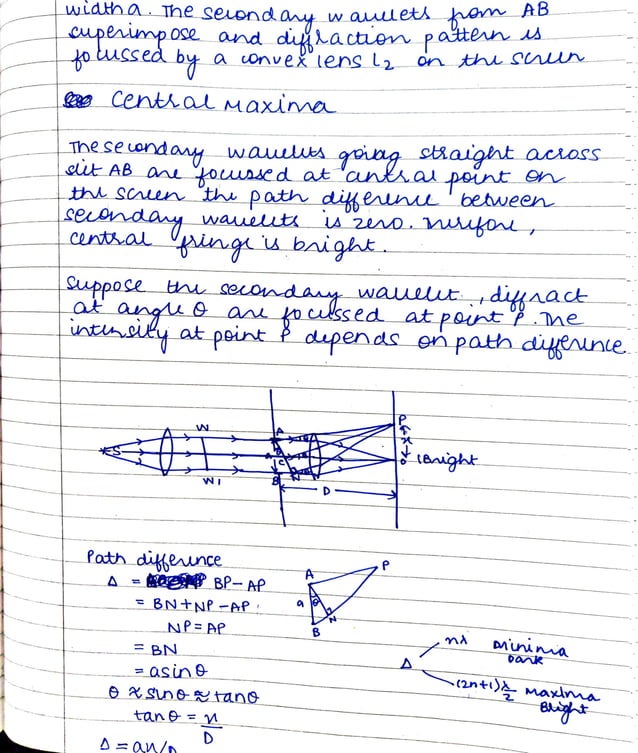 width a. The secondary wavelets from AB
superimpose and diffraction pattern is
focussed by a convex lens L2 on the screen
Central Maxima
The secondary wavelets going straight across
slit AB are focussed at central point on
the screen the path difference between
secondary wavelets is zero. Therefore,
central fringe is bright.
Suppose the secondary wavelet, diffract
at angle θ are focussed at point P. The
intensity at point P depends on path difference.
S
W
W1
A
a
C
B
N
P
x
O
(Bright
D
Path difference
Δ = BP - AP
= BN + NP - AP
NP = AP
= BN
= a sin θ
θ ≈ sin θ ≈ tan θ
tan θ = x/D
Δ = ax/D
A
P
a
θ
B
N
Δ
nλ Minima
Dark
(2n+1)λ/2 Maxima
Bright